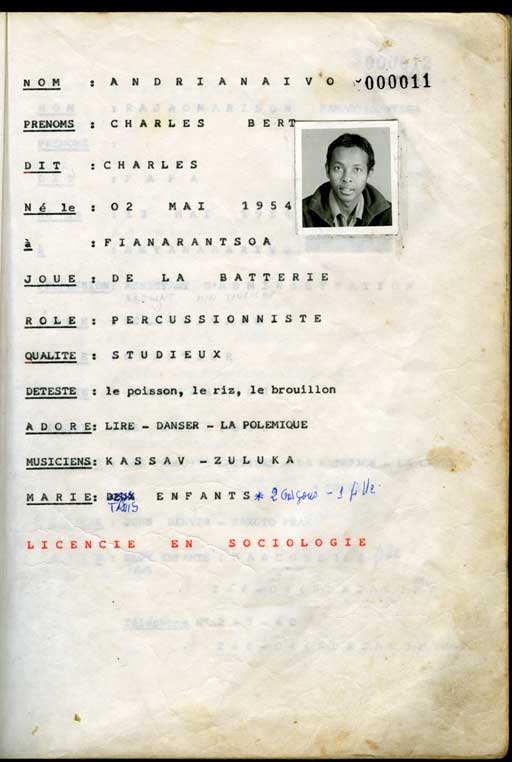 NOM : ANDRIANAIVO 000011
PRENOMS : CHARLES BERT
DIT : CHARLES
Né le : 02 MAI 1954
à : FIANARANTSOA
JOUE : DE LA BATTERIE
ROLE : PERCUSSIONNISTE
QUALITE : STUDIEUX
DETESTE : le poisson, le riz, le brouillon
ADORE: LIRE - DANSER - LA POLEMIQUE
MUSICIENS: KASSAV - ZULUKA
MARIE: DEUX ENFANTS * 2 garçons - 1 fille
TROIS
LICENCIE EN SOCIOLOGIE